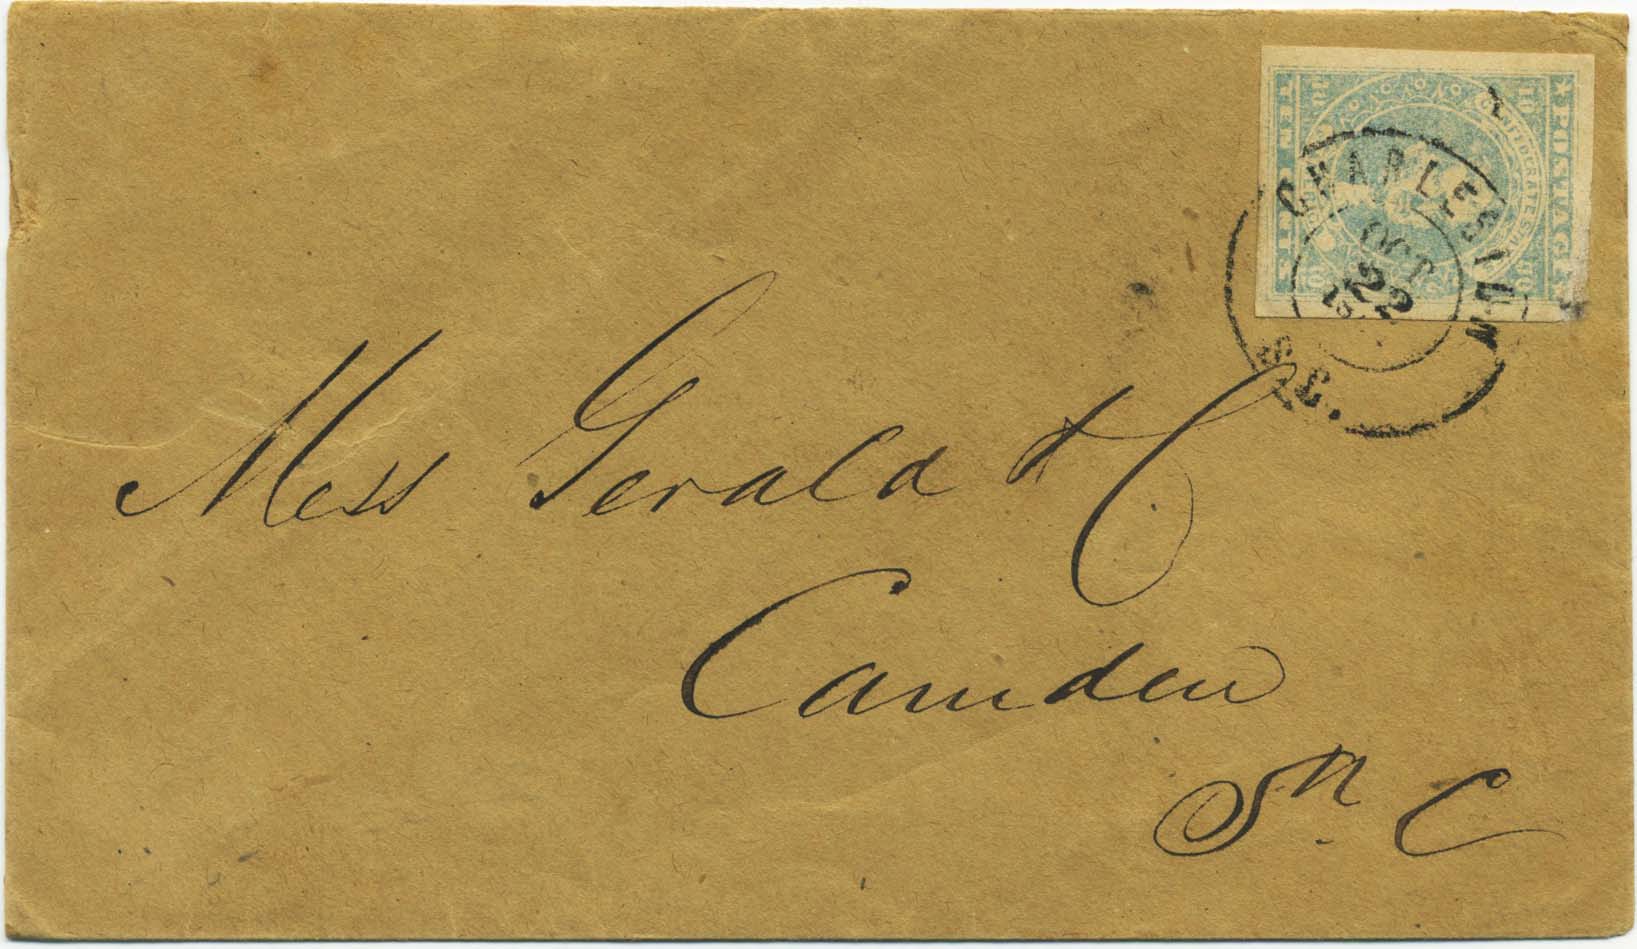 ★ POSTAGE
10 10
CONFEDERATE STA
TEN CENTS
10 10
CHARLESTON
OCT
22
S.C.
Mess Gerald & C.
Camden
Sn. C